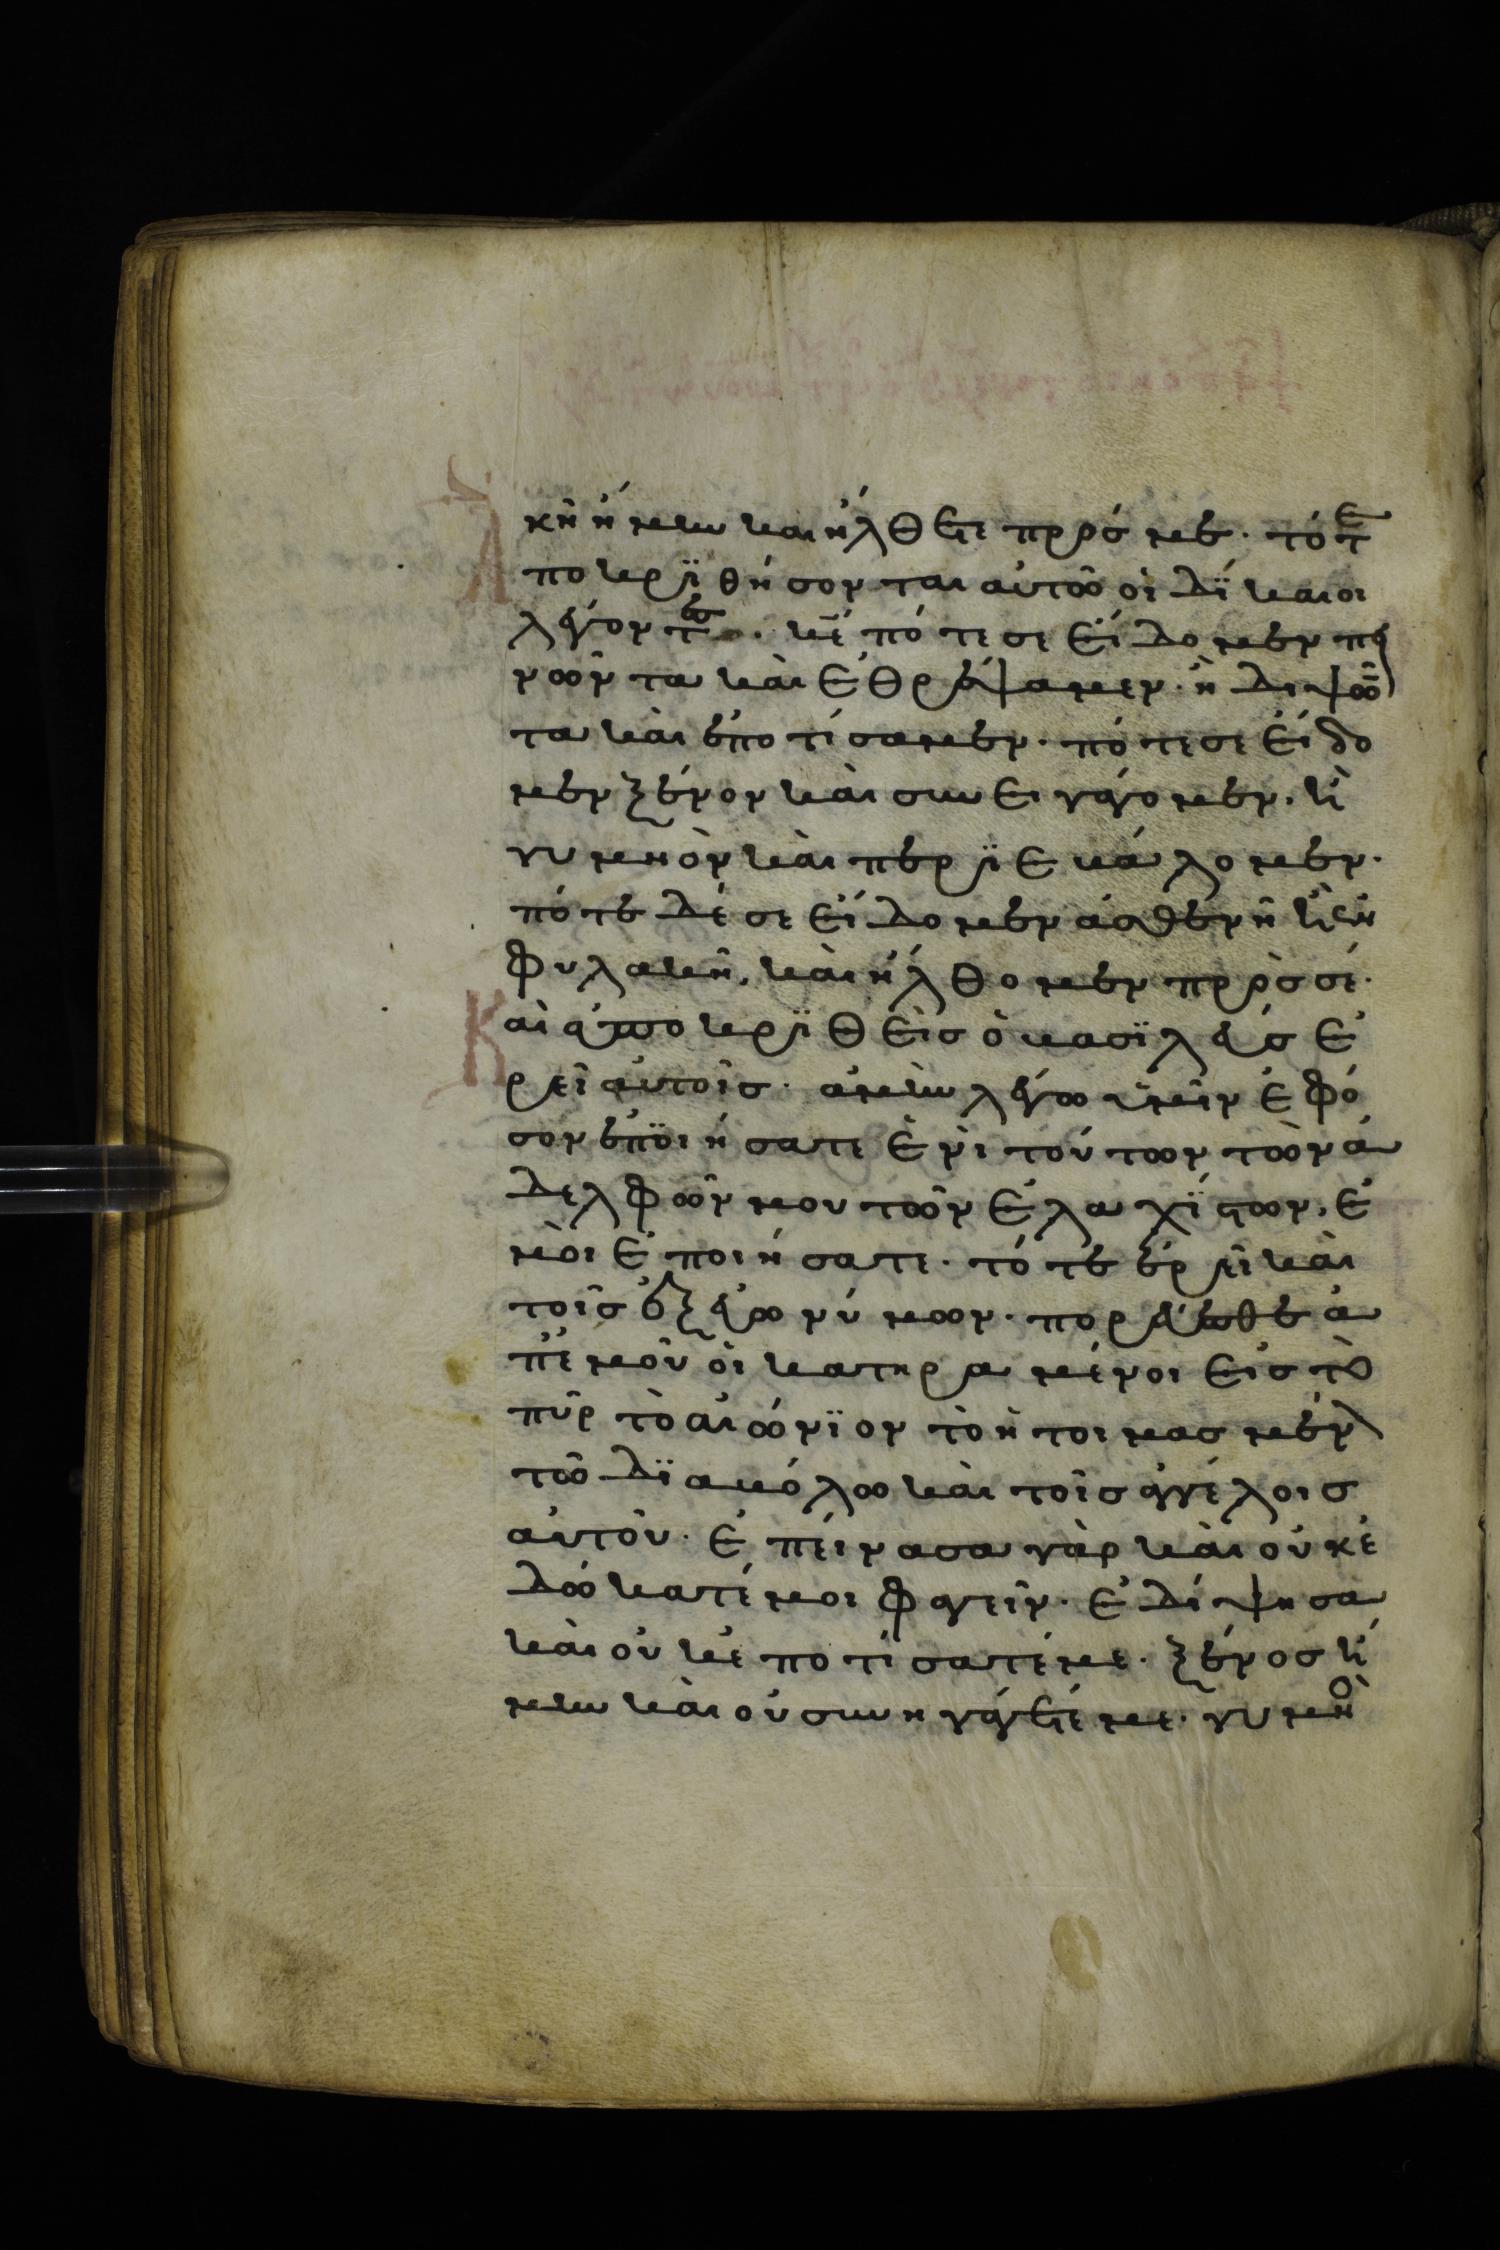 κῆ ἤμην και ἤλθετε πρός με· τότε
Ἀποκρϊθήσονται αὐτῶ οἱ δΐκαιοι
λέγοντες· κ̅ε̅ πότε σε εἴδομεν πει
νῶντα καὶ ἐθρέψαμεν· ἢ διψῶ
τα καὶ ἐποτίσαμεν· πότε σε εἴδο
μεν ξένον καὶ συνειγάγομεν· ἢ
γυμνὸν καὶ περϊεβάλομεν·
πότε δέ σε εἴδομεν ἀσθενῆ ἢ ἐν
φυλακῆ, καὶ ἤλθομεν πρὸς σέ·
Καὶ ἀποκρϊθεὶς ὁ βασϊλεύς ἐ
ρεῖ αὐτοῖς· ἀμὴν λέγω ὑμῖν ἐφό
σον ἐποιήσατε ἐνὶ τούτων τῶν ἀ
δελφῶν μου τῶν ἐλαχΐστων, ἐ
μοὶ ἐποιήσατε· τότε ἐρεῖ καὶ
τοῖς ἐξ εὐωνύμων· πορεύεσθε ἀ
π' ἐμοῦ οἱ κατηραμένοι εἰς τὸ
πῦρ τὸ αἰώνϊον τὸ ἡτοιμασμέν
τῶ δϊαβόλω καὶ τοῖς ἀγέλοις
αὐτοῦ· ἐπείνασα γὰρ καὶ οὐκ ἐ
δώκατέ μοι φαγεῖν· ἐδίψησα
καὶ οὐκ ἐποτίσατέ με· ξένος ἤ
μην καὶ οὐ συνηγάγετέ με· γυμνὸ